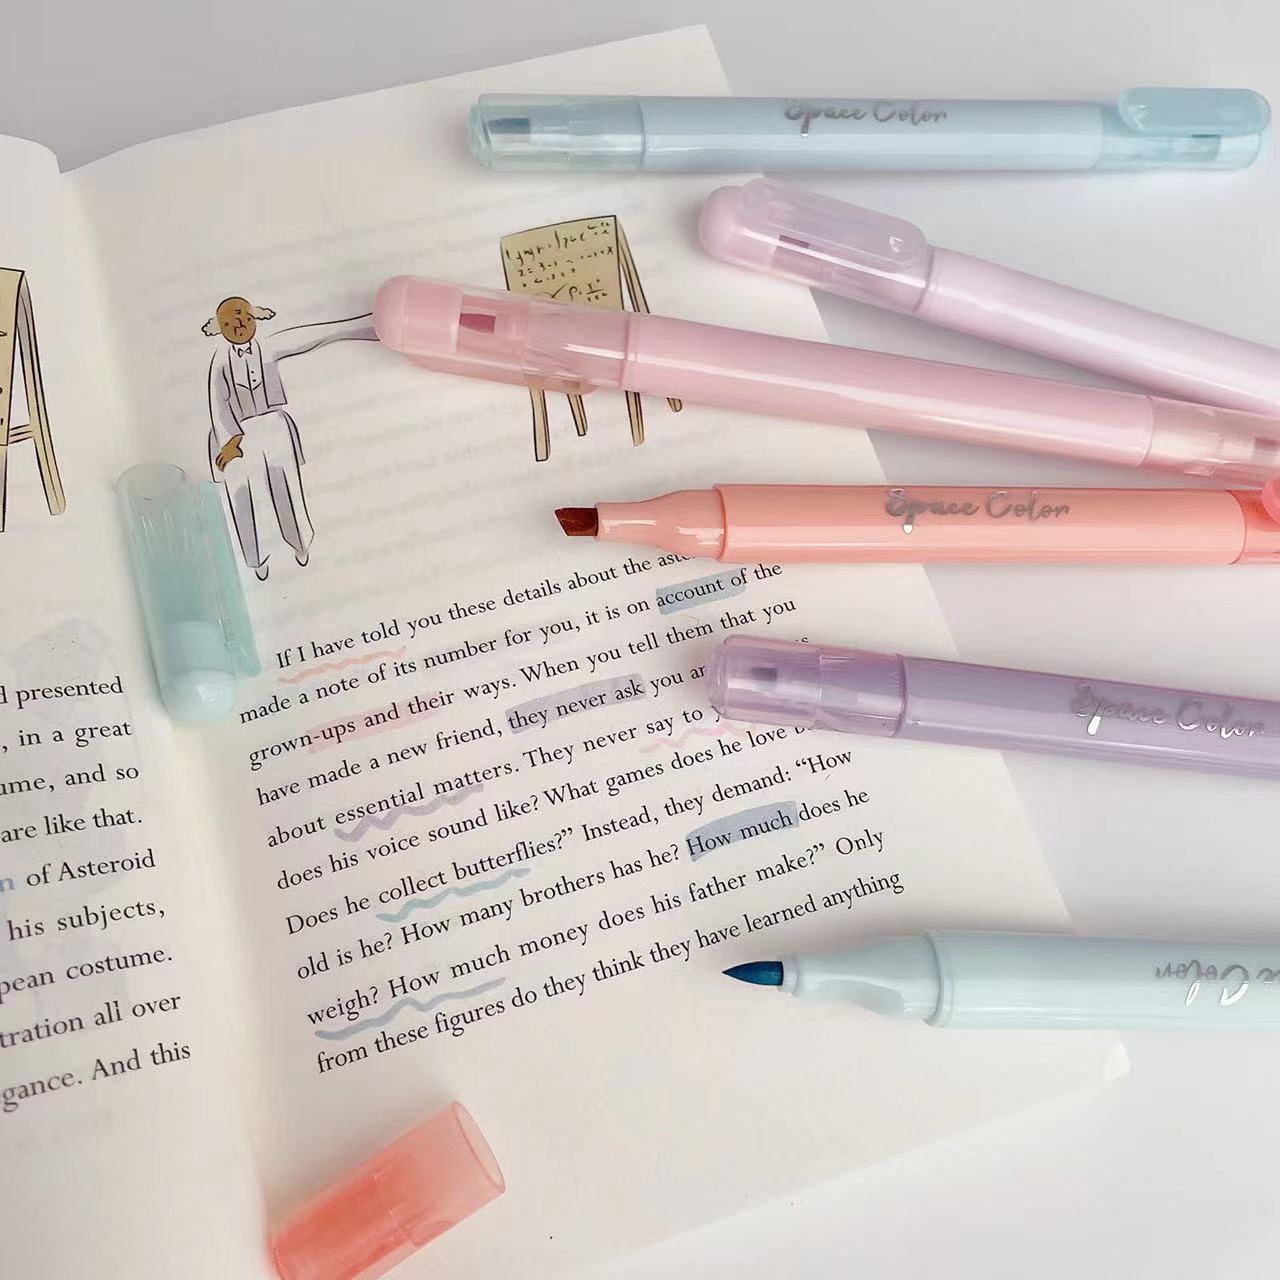 Space Color
Space Color
Space Color
Color
d presented
, in a great
ume, and so
are like that.
n of Asteroid
his subjects,
pean costume.
tration all over
gance. And this
If I have told you these details about the
made a note of its number for you, it is on account of the
grown-ups and their ways. When you tell them that you
have made a new friend, they never ask you
about essential matters. They never say to
does his voice sound like? What games does he love
Does he collect butterflies?” Instead, they demand: “How
old is he? How many brothers has he? How much does he
weigh? How much money does his father make?” Only
from these figures do they think they have learned anything